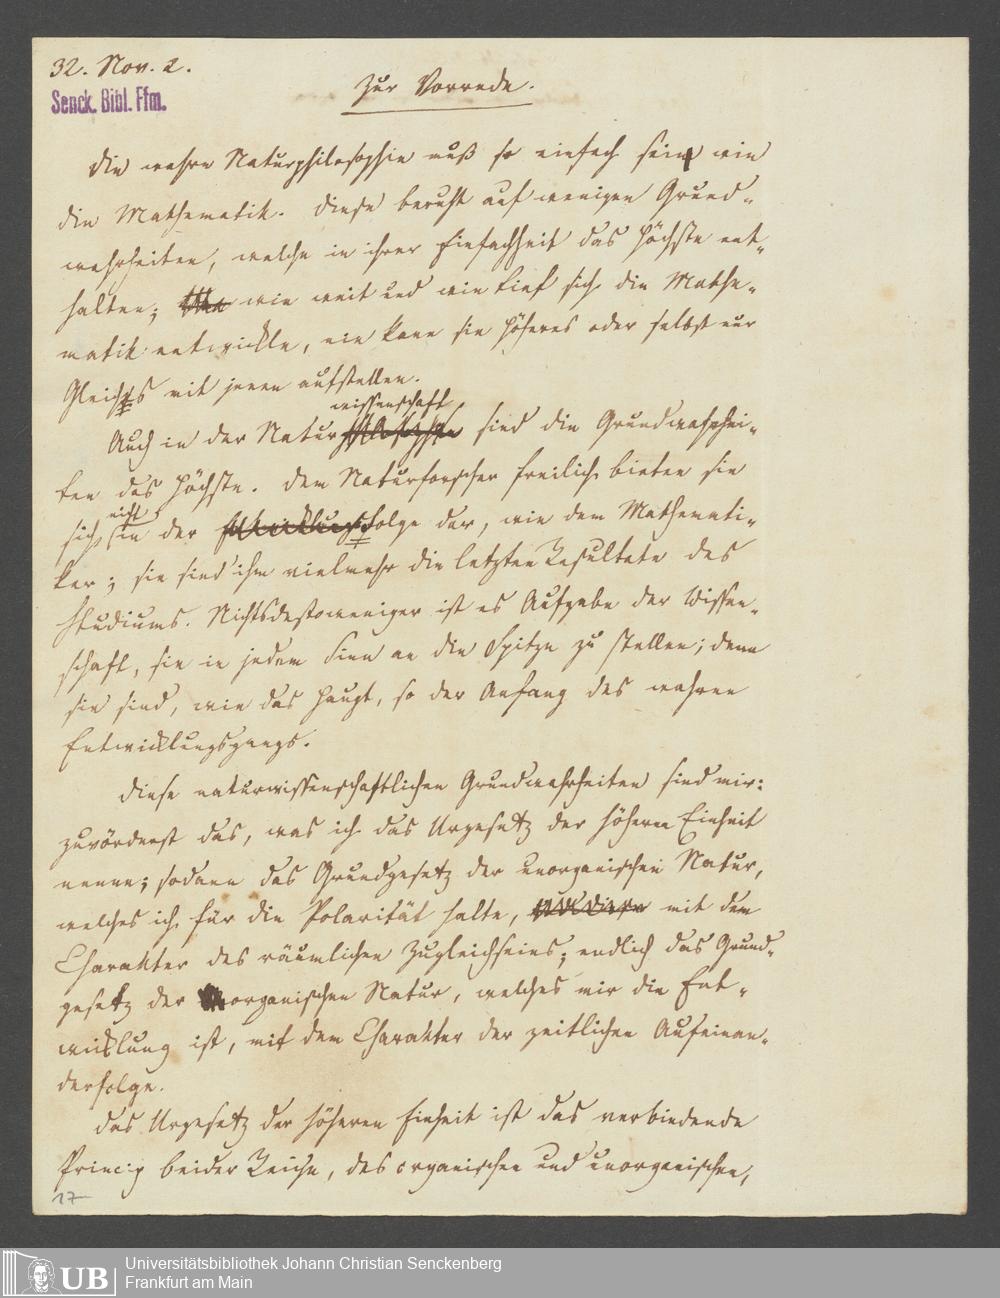 32. Nov. 2.
Senck. Bibl. Ffm.
Zur Vorrede.
Die wahre Naturphilosophie muß so einfach sein wie
die Mathematik. Diese beruht auf wenigen Grund-
wahrheiten, welche in ihrer Einfachheit das Höchste ent-
halten; wie weit und wie tief sich die Mathe-
matik entwickle, nie kann sie Höheres oder selbst nur
Gleiches mit jenen aufstellen.
wissenschaft
Auch in der Natur sind die Grundwahrhei-
ten das Höchste. Dem Naturforscher freilich bieten sie
nicht
sich in der folge dar, wie dem Mathemati-
ker; sie sind ihm vielmehr die letzten Resultate des
Studiums. Nichtsdestoweniger ist es Aufgabe der Wissen-
schaft, sie in jedem Sinn an die Spitze zu stellen; denn
sie sind, wie das Haupt, so der Anfang des wahren
Entwicklungsgangs.
Diese naturwissenschaftlichen Grundwahrheiten sind mir:
zuvörderst das, was ich das Urgesetz der höheren Einheit
nenne; sodann das Grundgesetz der unorganischen Natur,
welches ich für die Polarität halte, mit dem
Charakter des räumlichen Zugleichseins; endlich das Grund-
gesetz der organischen Natur, welches mir die Ent-
wicklung ist, mit dem Charakter der zeitlichen Aufeinan-
derfolge.
Das Urgesetz der höheren Einheit ist das verbindende
Princip beider Reiche, des organischen und unorganischen,
17
UB
Universitätsbibliothek Johann Christian Senckenberg
Frankfurt am Main